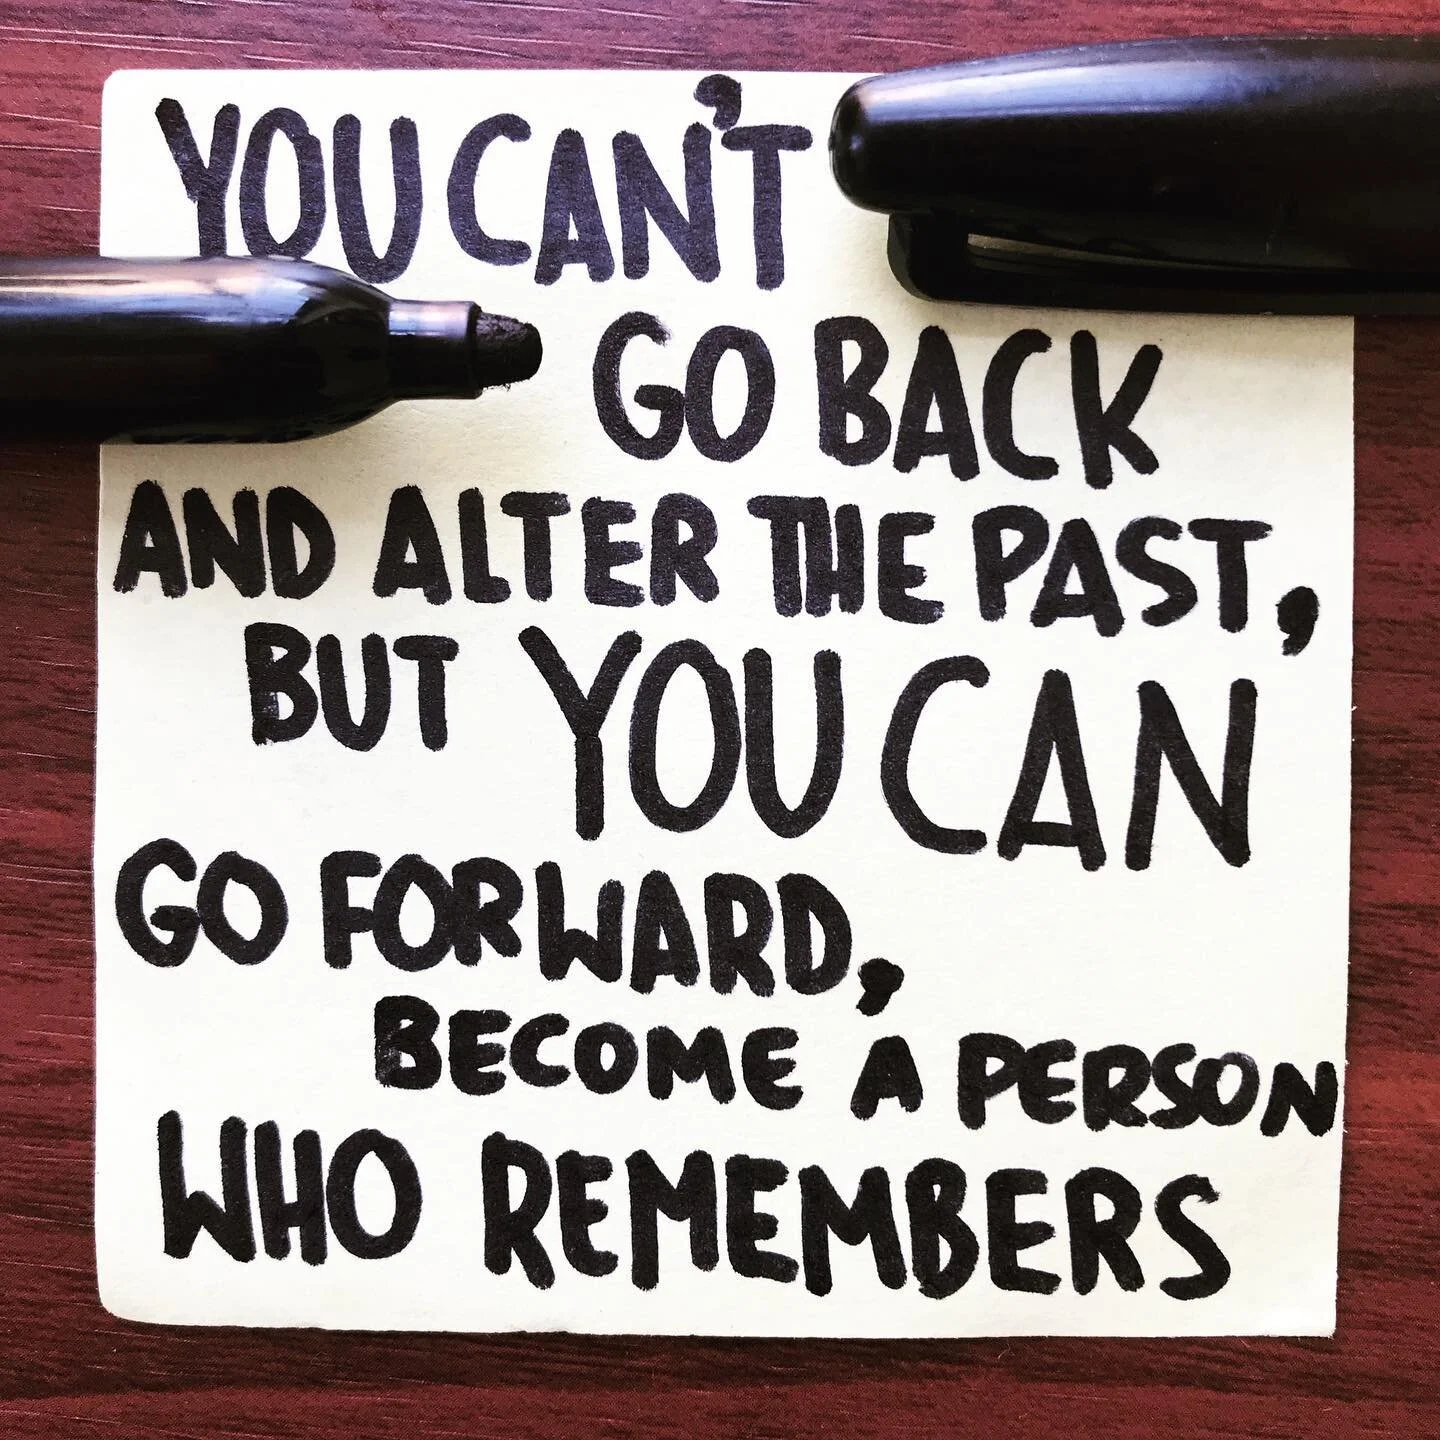 YOU CAN'T
GO BACK
AND ALTER THE PAST,
BUT YOU CAN
GO FORWARD,
BECOME A PERSON
WHO REMEMBERS